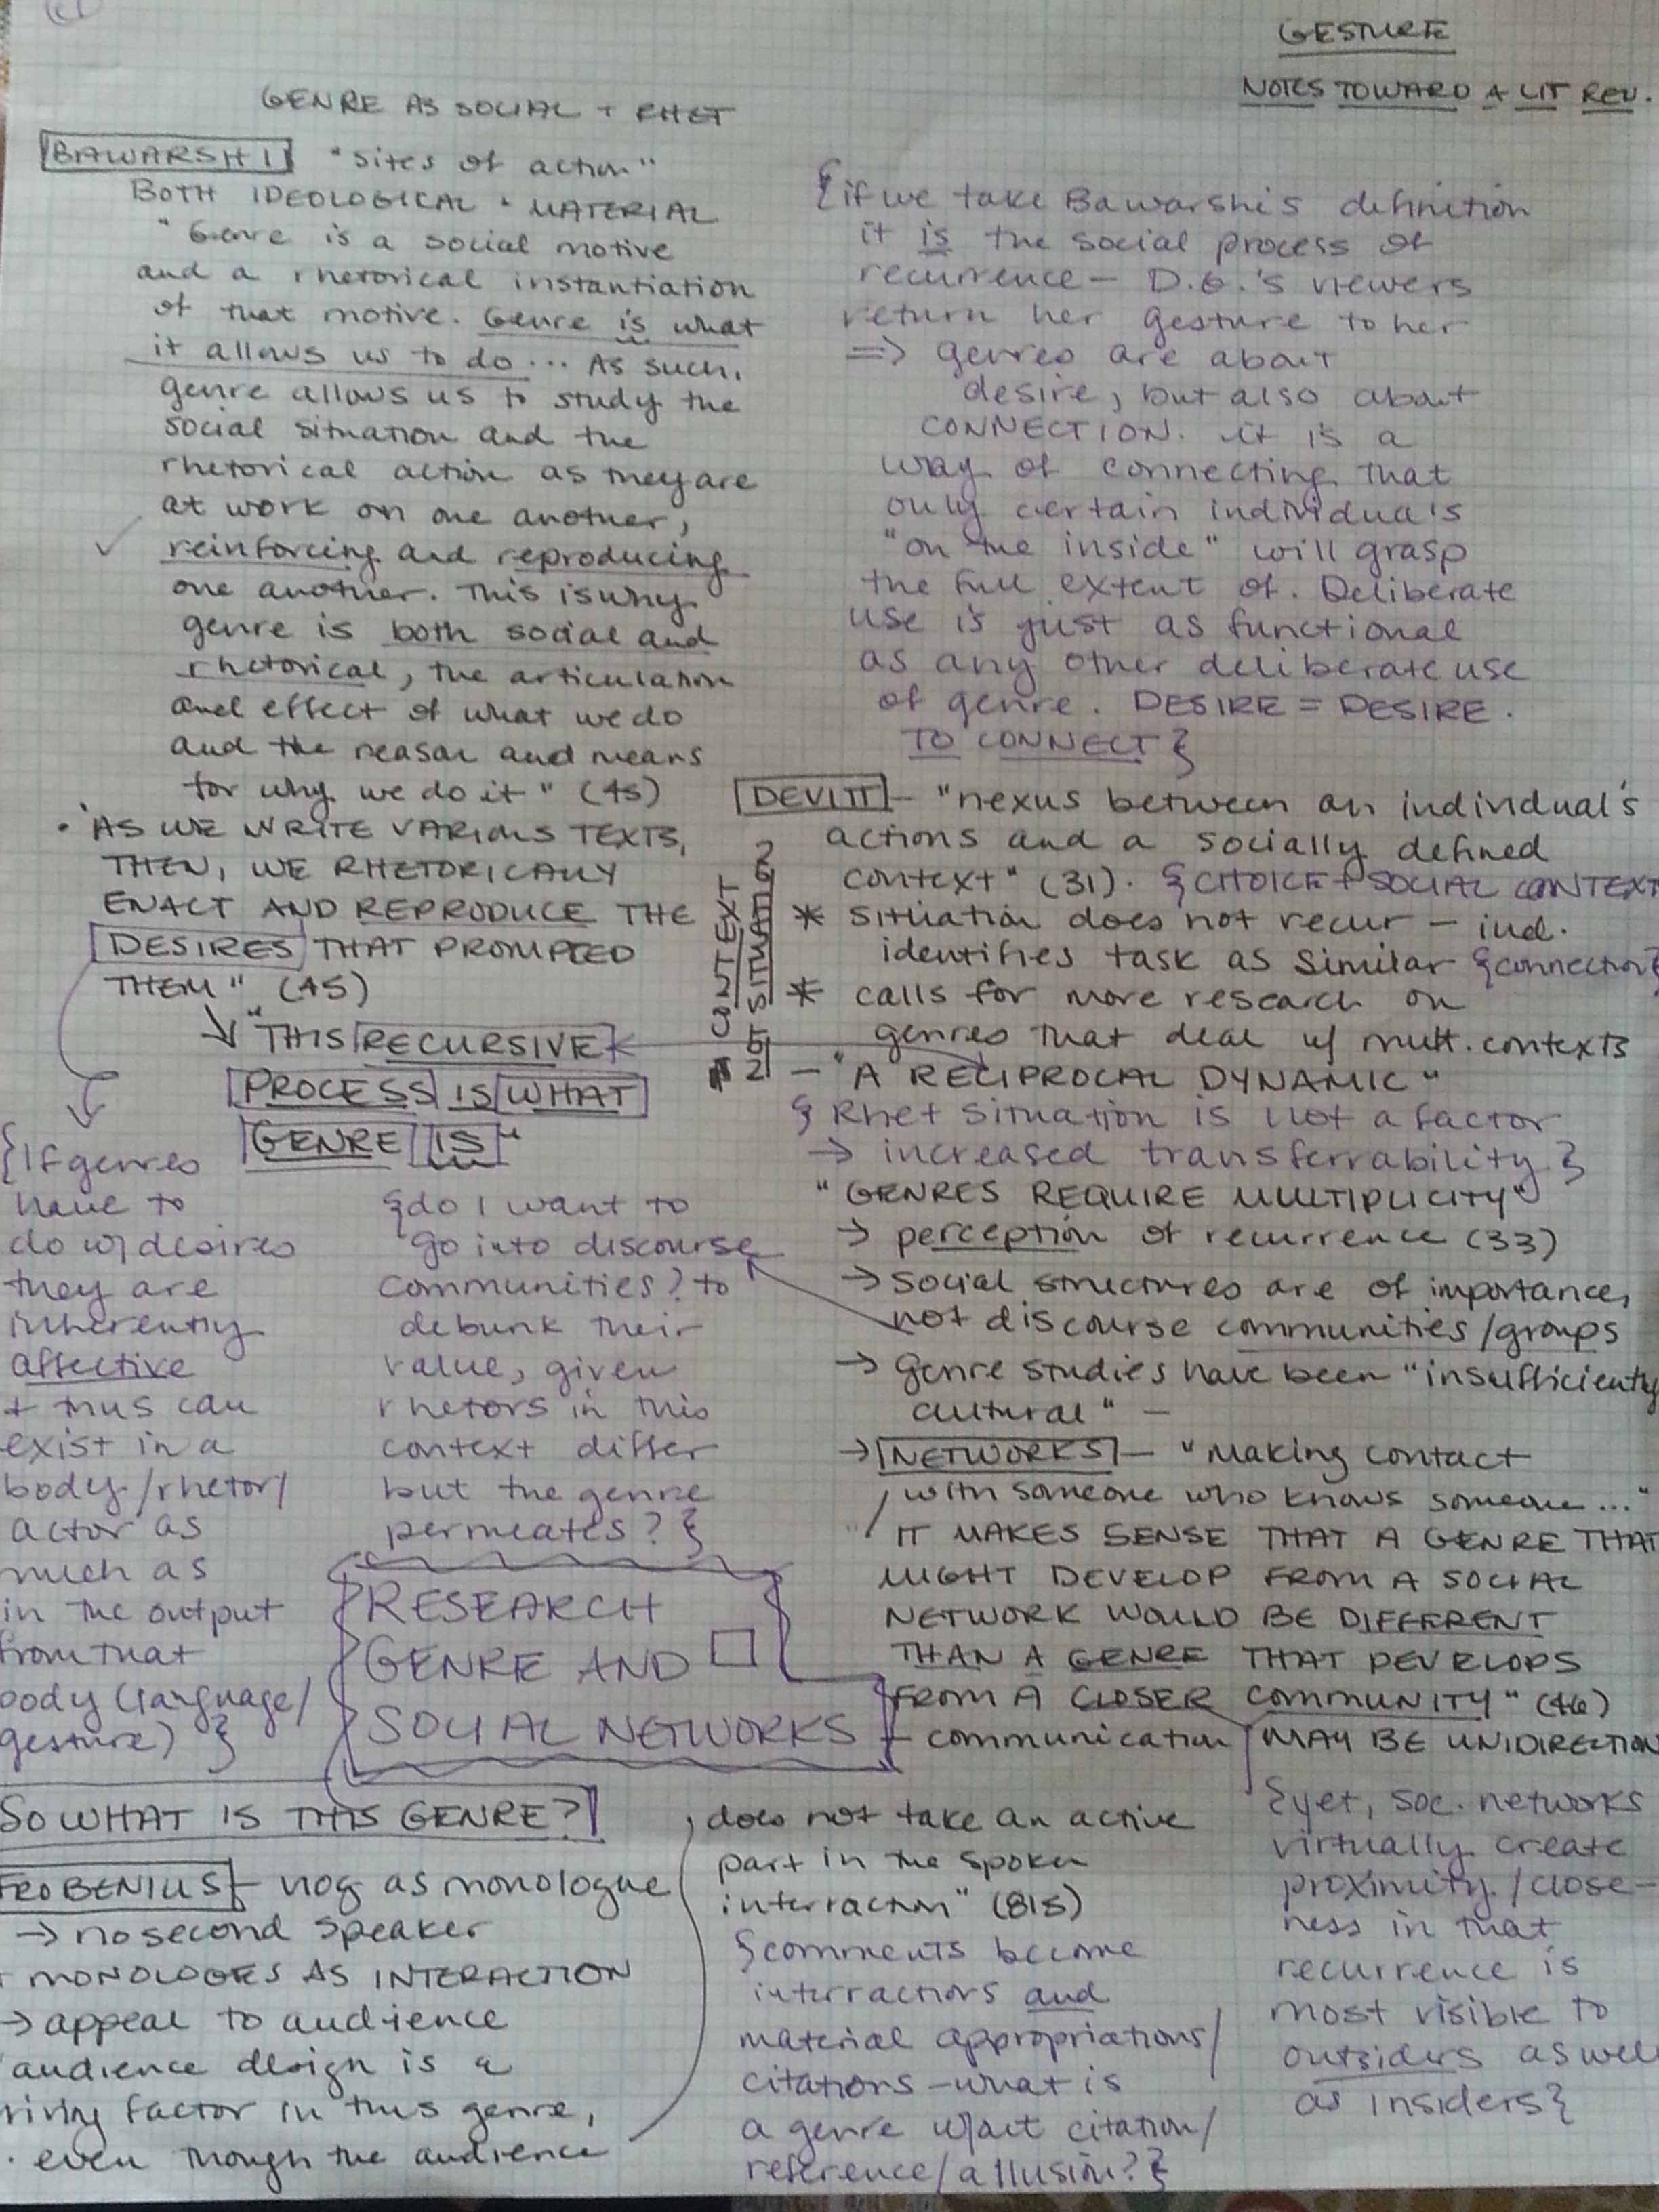 GESTURE
NOTES TOWARD A LIT REV.
GENRE AS SOCIAL + RHET
BAWARSHI "sites of action"
BOTH IDEOLOGICAL + MATERIAL
"Genre is a social motive
and a rhetorical instantiation
of that motive. Genre is what
it allows us to do... As such,
genre allows us to study the
social situation and the
rhetorical action as they are
at work on one another,
reinforcing and reproducing
one another. This is why
genre is both social and
rhetorical, the articulation
and effect of what we do
and the reason and means
for why we do it" (45)
• "AS WE WRITE VARIOUS TEXTS,
THEN, WE RHETORICALLY
ENACT AND REPRODUCE THE
DESIRES THAT PROMPTED
THEM" (45)
↓ "THIS RECURSIVE
PROCESS IS WHAT
GENRE IS"
{If genres
have to
do w/ desires
they are
inherently
affective
+ thus can
exist in a
body/rhetor/
actor as
much as
in the output
from that
body (language/
gesture) }
{do I want to
go into discourse
communities? to
debunk their
value, given
rhetors in this
context differ
but the genre
permeates? }
RESEARCH
GENRE AND
SOCIAL NETWORKS
{if we take Bawarshi's definition
it is the social process of
recurrence — D.G.'s viewers
return her gesture to her
=> genres are about
desire, but also about
CONNECTION. it is a
way of connecting that
only certain individuals
"on the inside" will grasp
the full extent of. Deliberate
use is just as functional
as any other deliberate use
of genre. DESIRE = DESIRE
TO CONNECT }
DEVITT — "nexus between an individual's
actions and a socially defined
context" (31). {CHOICE + SOCIAL CONTEXT
* situation does not recur — ind.
identifies task as similar {connection}
* calls for more research on
genres that deal w/ mult. contexts
CONTEXT
NOT SITUATION
— "A RECIPROCAL DYNAMIC"
{ Rhet situation is not a factor
→ increased transferrability }
"GENRES REQUIRE MULTIPLICITY"
→ perception of recurrence (33)
→ social structures are of importance,
not discourse communities/groups
→ Genre studies have been "insufficiently
cultural" —
→ NETWORKS — "Making contact
with someone who knows someone..."
"IT MAKES SENSE THAT A GENRE THAT
MIGHT DEVELOP FROM A SOCIAL
NETWORK WOULD BE DIFFERENT
THAN A GENRE THAT DEVELOPS
FROM A CLOSER COMMUNITY" (46)
— communication MAY BE UNIDIRECTION
{yet, soc. networks
virtually create
proximity/close-
ness in that
recurrence is
most visible to
outsiders as well
as insiders}
SO WHAT IS THIS GENRE?
FROBENIUS — vlog as monologue
→ no second speaker
+ MONOLOGES AS INTERACTION
→ appeal to audience
audience design is a
riving factor in this genre,
even though the audience
does not take an active
part in the spoken
interraction" (815)
{comments become
interractions and
material appropriations/
citations — what is
a genre w/out citation/
reference/allusion? }